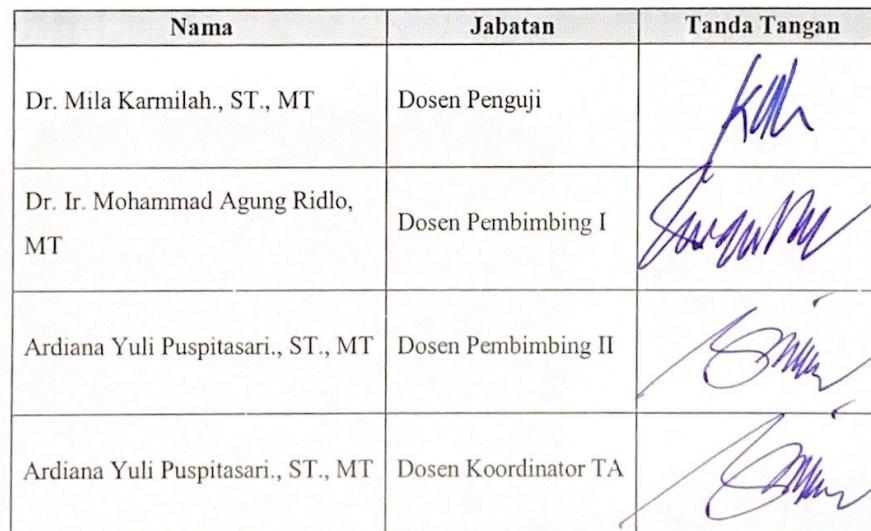 Nama Jabatan Tanda Tangan
Dr. Mila Karmilah., ST., MT Dosen Penguji
Dr. Ir. Mohammad Agung Ridlo,
MT Dosen Pembimbing I
Ardiana Yuli Puspitasari., ST., MT Dosen Pembimbing II
Ardiana Yuli Puspitasari., ST., MT Dosen Koordinator TA